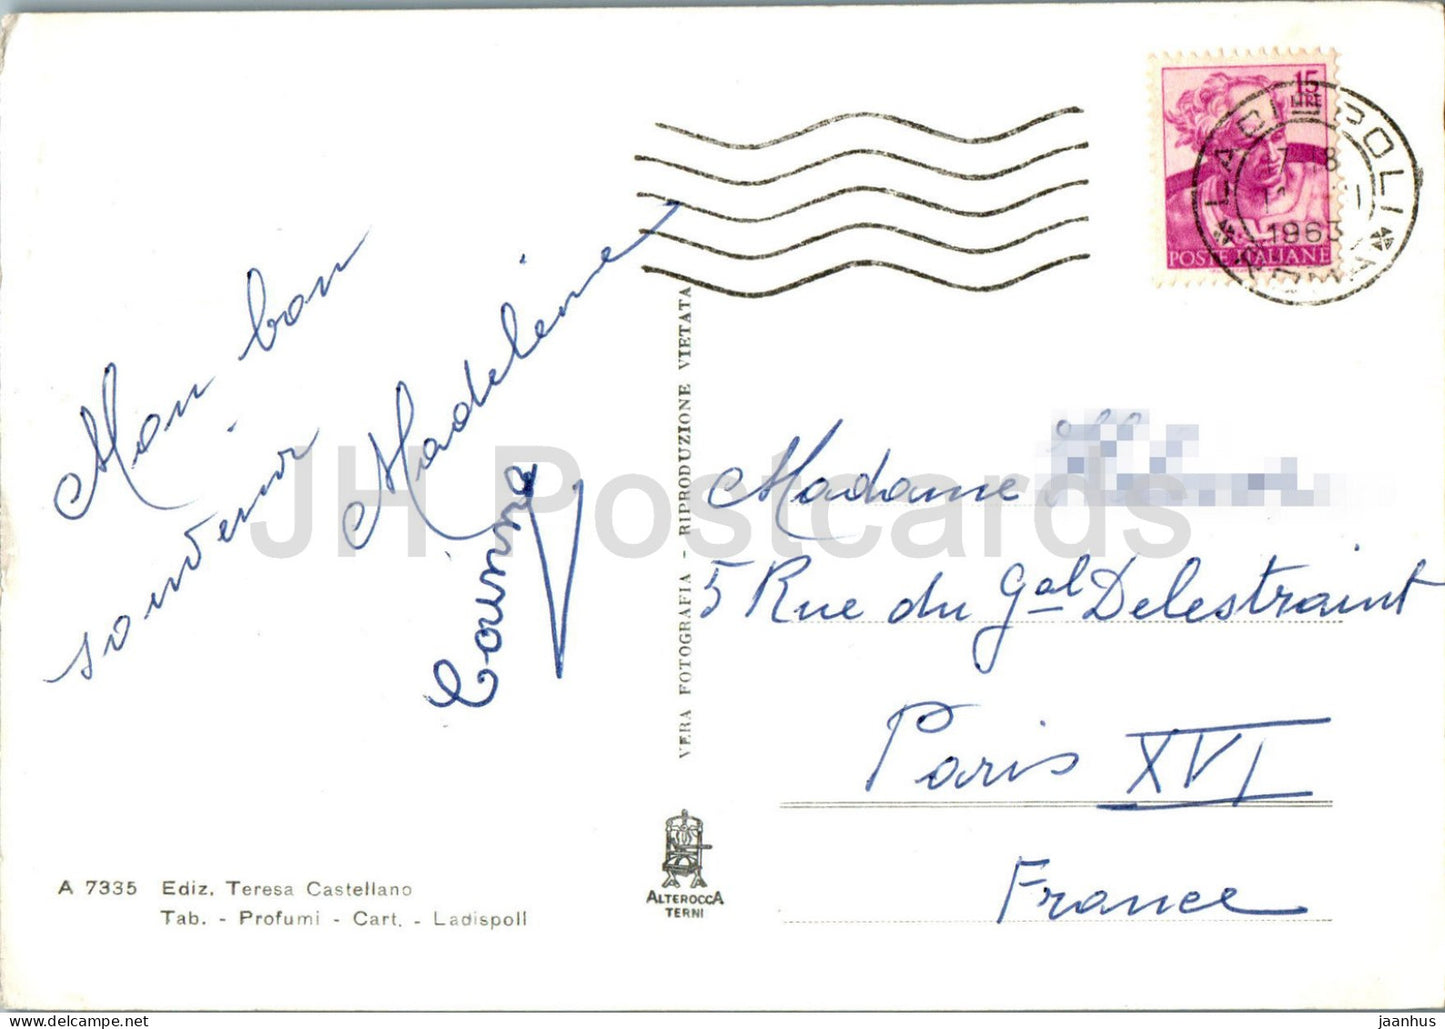 15
LIRE
POSTE ITALIANE
LADISPOLI
1963
ROMA
Mon bon
souvenir
Madeleine
VERA FOTOGRAFIA - RIPRODUZIONE VIETATA
JH Postcards
Madame
5 Rue du Gal Delestraint
Paris XVI
France
A 7335 Ediz. Teresa Castellano
Tab. - Profumi - Cart. - Ladispoli
ALTEROCCA
TERNI
jaanhus
jhpostcards.com